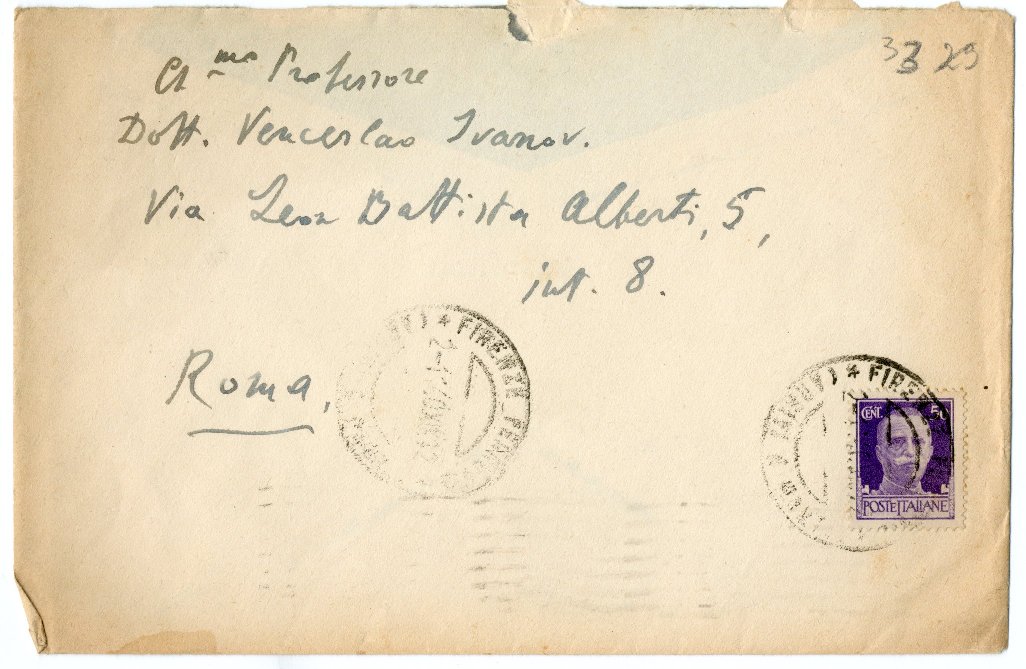 3 3 29
Ch.mo Professore
Dott. Venceslao Ivanov.
Via Leon Battista Alberti, 5,
int. 8.
Roma,
* FIRENZE FERR
* FIREN
CENT. 50
POSTE ITALIANE